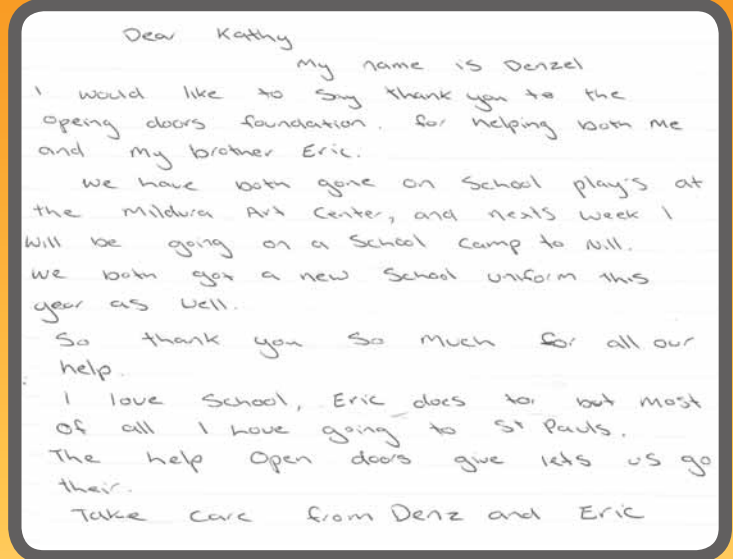 Dear Kathy
My name is Denzel
I would like to Say thank you to the
opeing doors foundation. for helping both me
and my brother Eric.
we have both gone on School play's at
the Mildura Art Center, and nexts week I
will be going on a School Camp to Nill.
we both got a new School uniform this
year as well.
So thank you So much for all our
help.
I love School, Eric does to, but most
of all I love going to St Pauls.
The help Open doors give lets us go
their.
Take care from Denz and Eric